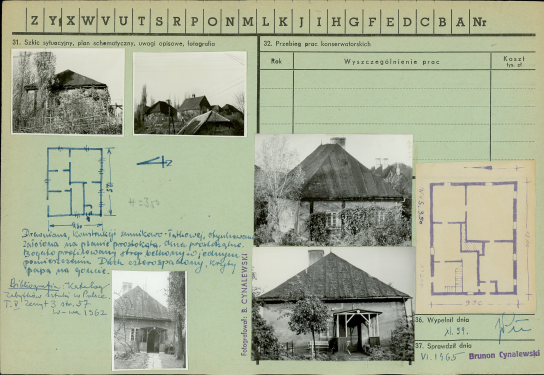 Z Y X W V U T S R P O N M L K J I H G F E D C B A Nr
31. Szkic sytuacyjny, plan schematyczny, uwagi opisowe, fotografia
32. Przebieg prac konserwatorskich
Rok Wyszczególnienie prac Koszt
tys. zł
Drewniana, konstrukcji sumikowo-łątkowej, otynkowana
założona na planie prostokąta. Okna prostokątne.
Bogato profilowany strop belkowy w jednym
pomieszczeniu. Dach czterospadowy, kryty
papą na goncie.
Bibliografia: Katalog
Zabytków Sztuki w Polsce
T. zeszyt 3 str. 57
W-wa 1962
Fotografował: B. CYNALEWSKI
36. Wypełnił dnia
XI. 59.
37. Sprawdził dnia
VI. 1965 Brunon Cynalewski